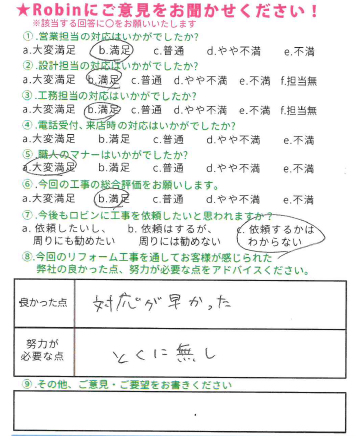 ★Robinにご意見をお聞かせください！
※該当する回答に○をお願いいたします
①.営業担当の対応はいかがでしたか?
a.大変満足 b.満足 c.普通 d.やや不満 e.不満
②.設計担当の対応はいかがでしたか?
a.大変満足 b.満足 c.普通 d.やや不満 e.不満 f.担当無
③.工務担当の対応はいかがでしたか?
a.大変満足 b.満足 c.普通 d.やや不満 e.不満 f.担当無
④.電話受付、来店時の対応はいかがでしたか?
a.大変満足 b.満足 c.普通 d.やや不満 e.不満
⑤.職人のマナーはいかがでしたか?
a.大変満足 b.満足 c.普通 d.やや不満 e.不満
⑥.今回の工事の総合評価をお願いします。
a.大変満足 b.満足 c.普通 d.やや不満 e.不満
⑦.今後もロビンに工事を依頼したいと思われますか?
a. 依頼したいし、 b. 依頼はするが、 c. 依頼するかは
周りにも勧めたい 周りには勧めない わからない
⑧.今回のリフォーム工事を通してお客様が感じられた
弊社の良かった点、努力が必要な点をアドバイスください。
良かった点 対応が早かった
努力が
必要な点 とくに無し
⑨.その他、ご意見・ご要望をお書きください